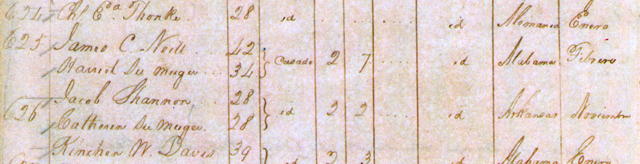 624 Chs Ea Thonke 28 id id Alemania Enero
625 James C. Neill 42 Casado 2 7 id Alabama Febrero
Harriet Su Muger 34
626 Jacob Shannon 28 id 2 2 id Arkansas Noviembre
Catherin Su Muger 28
Kinchen W. Davis 39 id 2 3 id Alabama Enero